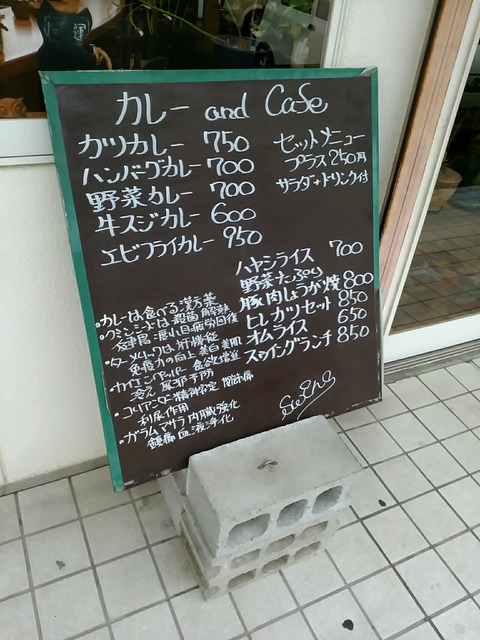 カレー and Cafe
カツカレー 750
ハンバーグカレー 700
野菜カレー 700
牛スジカレー 600
エビフライカレー 950
セットメニュー
プラス250円
サラダ+ドリンク付
ハヤシライス 700
野菜たっぷり
豚肉しょうが焼 800
ヒレカツセット 850
オムライス 650
スイングランチ 850
・カレーは食べる漢方薬
・クミンシードは殺菌 解熱
・ターメリックは肝機能
免疫力の向上 美白 美肌
・カイエンペッパー 食欲増進
冷え 風邪予防
・コリアンダー 精神安定 関節痛
利尿作用
・ガラムマサラ 内臓強化
頭痛 血液浄化